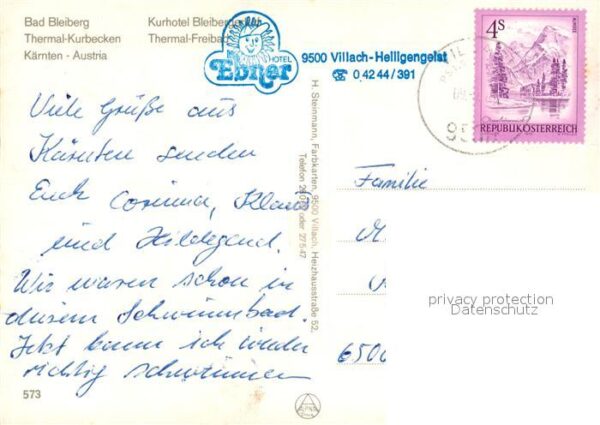 Bad Bleiberg
Thermal-Kurbecken
Kärnten - Austria
Kurhotel Bleibergerhof
Thermal-Freibad
HOTEL
Ebner
9500 Villach-Heiligengeist
☎ 0 42 44 / 391
4S
REPUBLIK ÖSTERREICH
Viele Grüße aus
Kärnten senden
Euch Corinna, Klaus
und Hildegund.
Wir waren schon in
diesem Schwimmbad.
Jetzt kann ich wieder
richtig schwimmen
573
H. Steinmann, Farbkarten, 9500 Villach, Heizhausstraße 52,
oder 27547
Familie
M
6500
privacy protection
Datenschutz